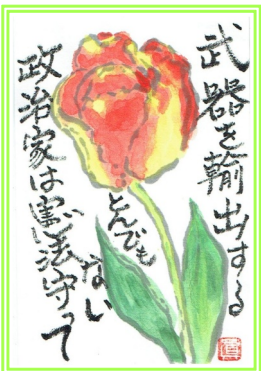 武器を輸出する
とんでもない
政治家は憲法守って